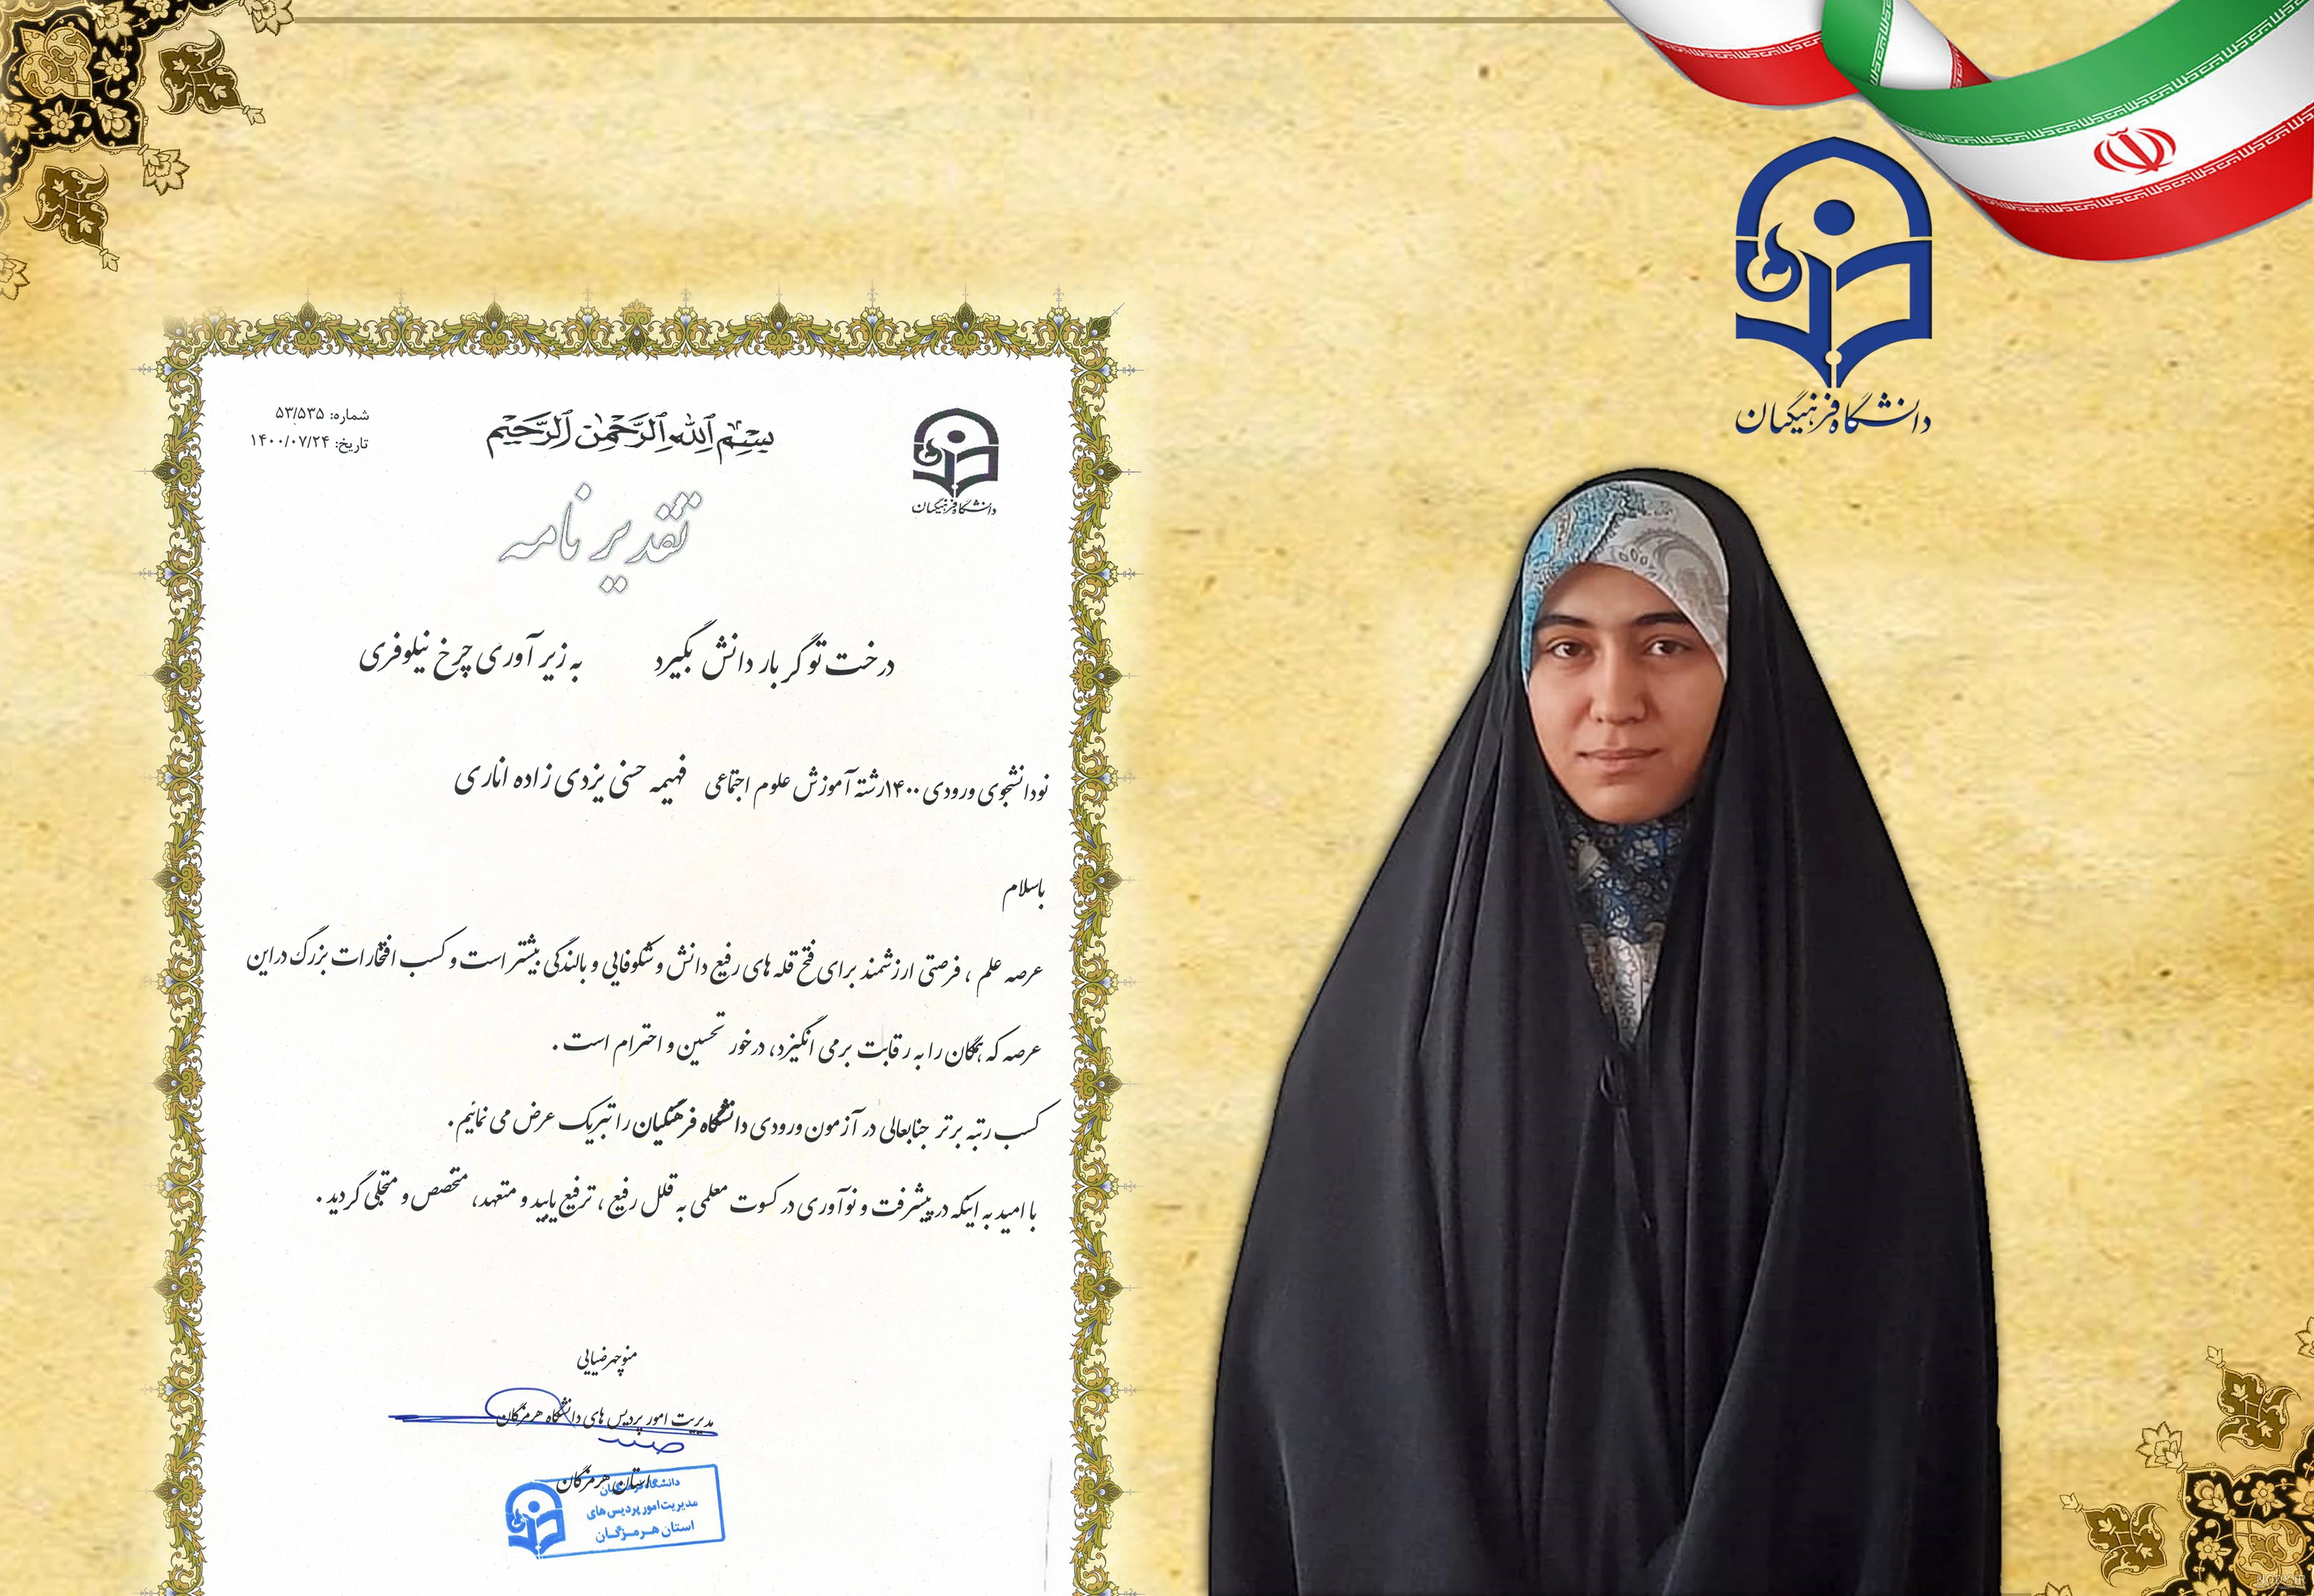 دانشگاه فرهنگیان
دانشگاه فرهنگیان
بسم الله الرحمن الرحیم
شماره: ۵۳/۵۳۵
تاریخ: ۱۴۰۰/۰۷/۲۴
تقدیر نامه
درخت تو گر بار دانش بگیرد به زیر آوری چرخ نیلوفری
نودانشجوی ورودی ۱۴۰۰رشته آموزش علوم اجتماعی فهیمه حسنی یزدی زاده اناری
باسلام
عرصه علم ، فرصتی ارزشمند برای فتح قله های رفیع دانش و شکوفایی و بالندگی بیشتر است و کسب افتخارات بزرگ دراین
عرصه که همگان را به رقابت برمی انگیزد، درخور تحسین و احترام است .
کسب رتبه برتر جنابعالی در آزمون ورودی دانشگاه فرهنگیان را تبریک عرض می نمائیم.
با امید به اینکه در پیشرفت و نوآوری در کسوت معلمی به قلل رفیع ، ترفیع یابید و متعهد، متخصص و متجلی گردید .
منوچهر ضیایی
مدیریت امور پردیس های دانشگاه هرمزگان
استان هرمزگان
دانشگاه فرهنگیان
مدیریت امور پردیس های
استان هرمزگان